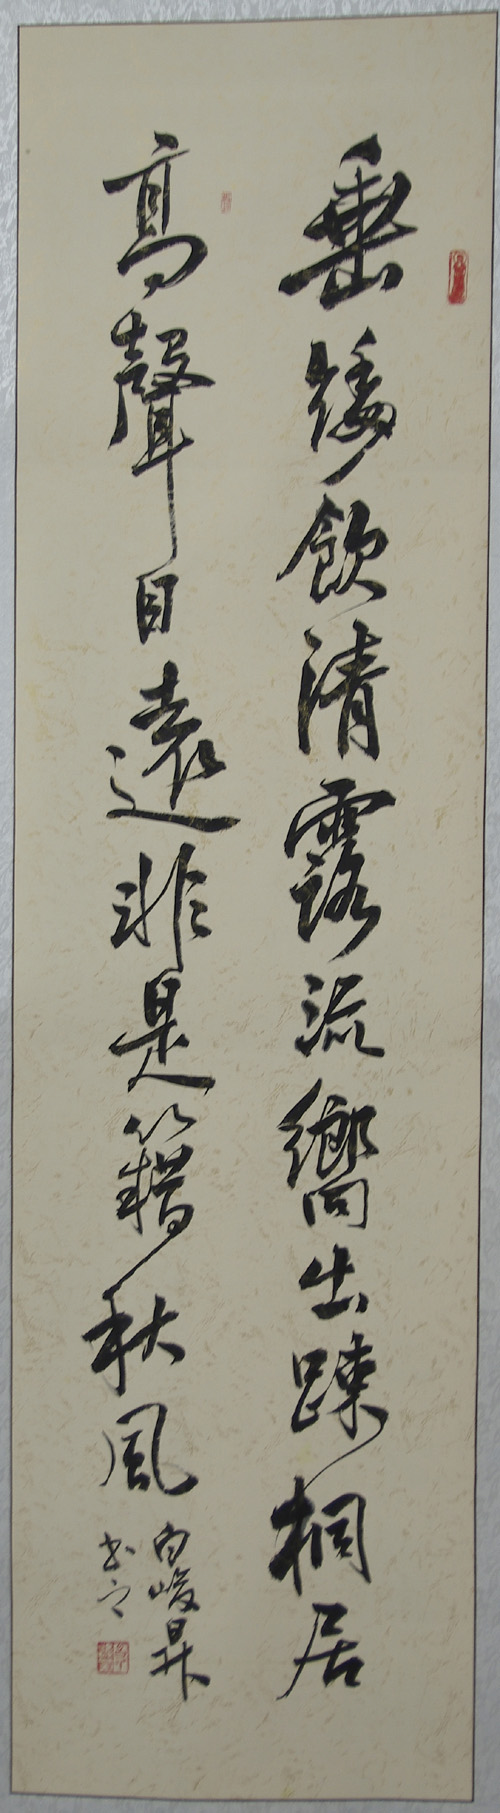 垂緌飲清露流響出踈桐居
高聲自遠非是籍秋風
白峻昇
书之